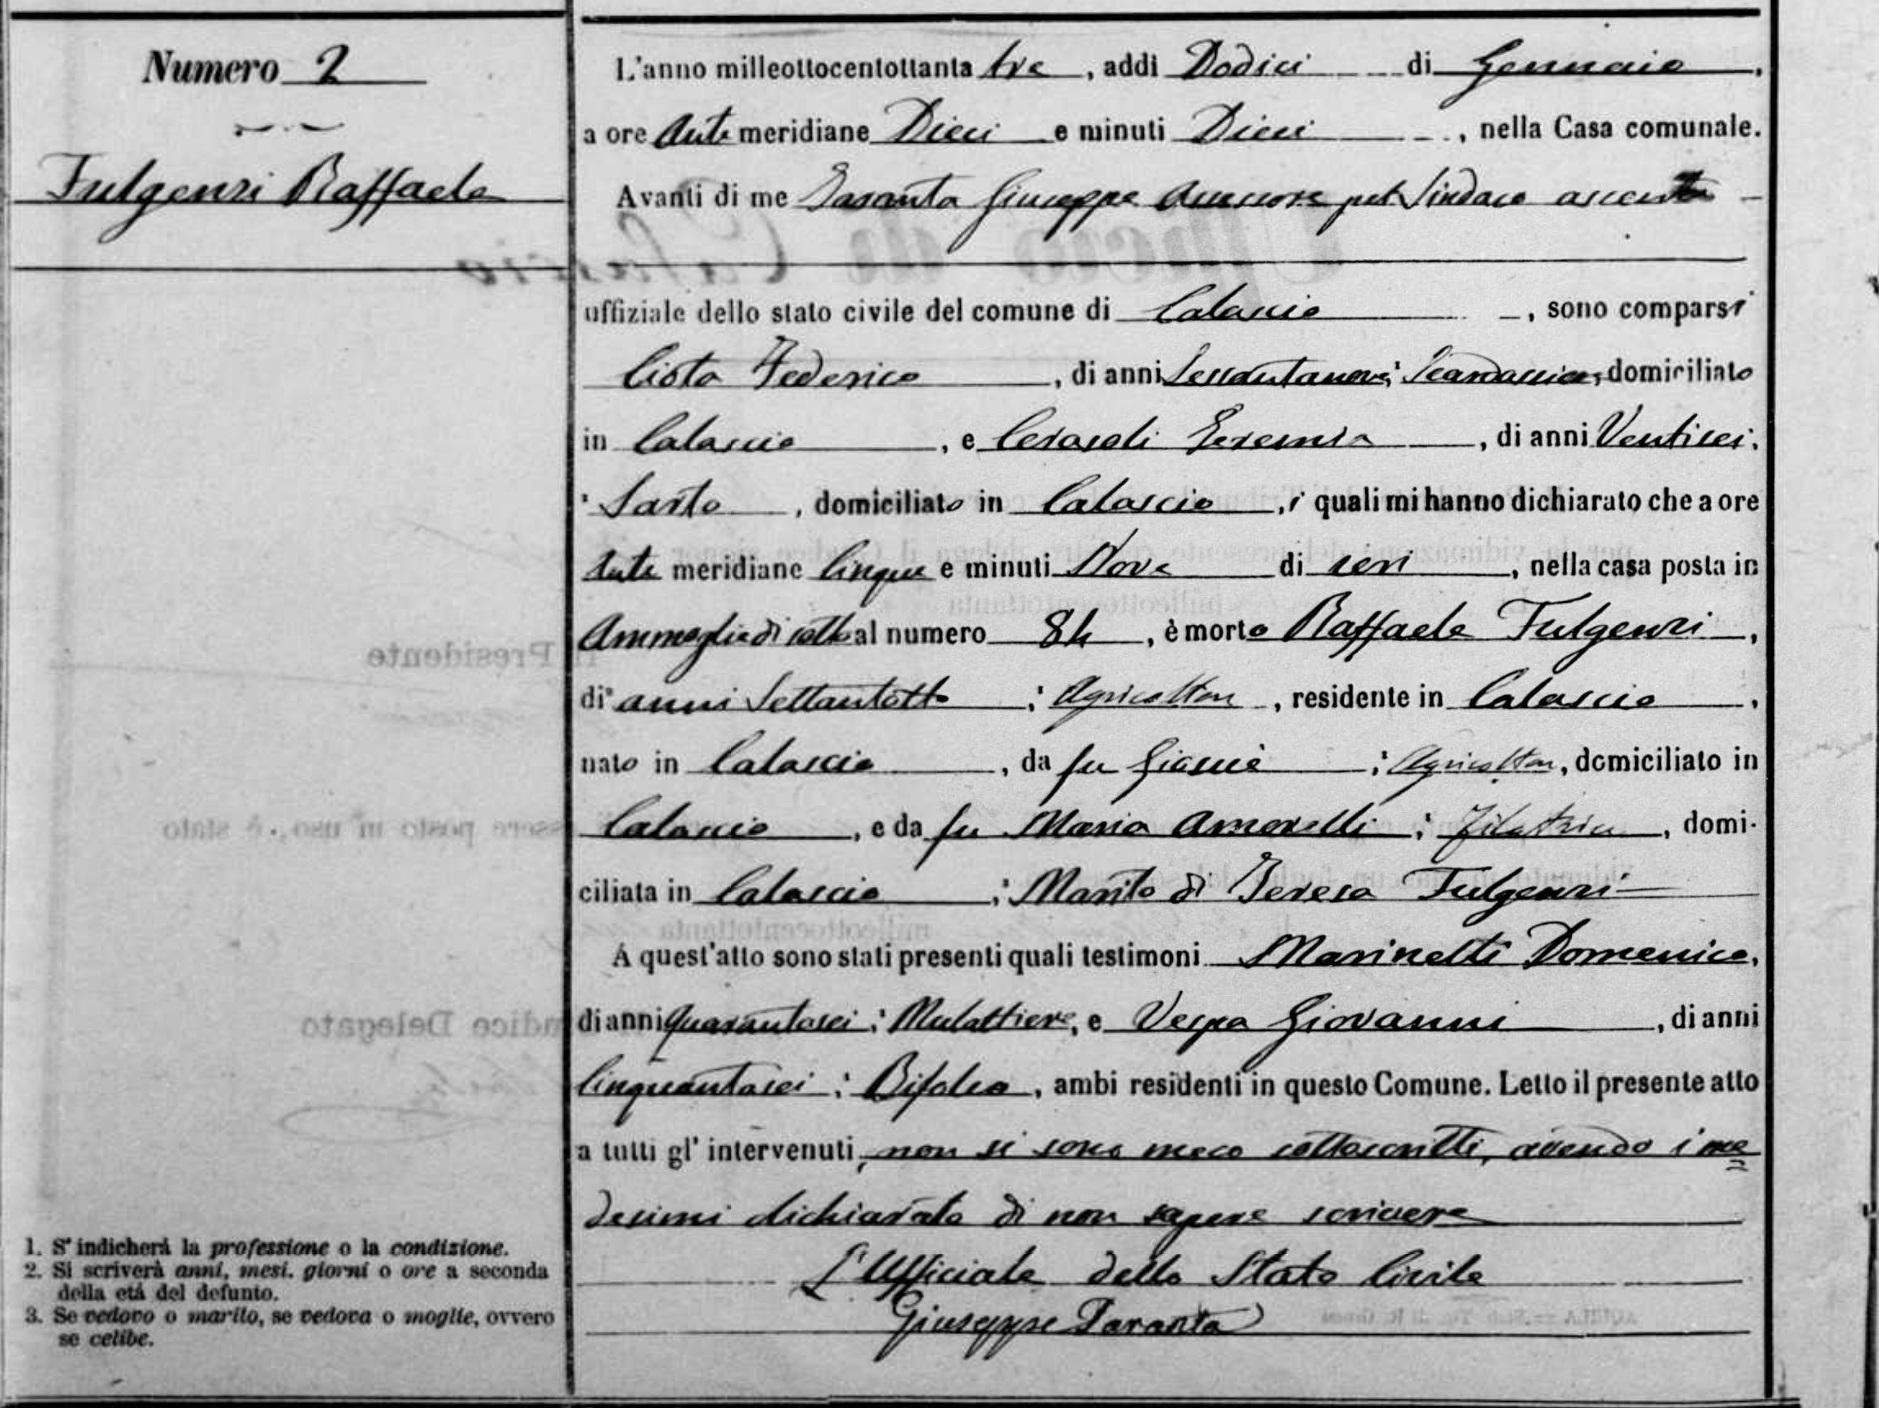 Numero 2
Fulgenzi Raffaele
L'anno milleottocentottanta tre, addi Dodici di Gennaio,
a ore Ante meridiane Dieci e minuti Dieci, nella Casa comunale.
Avanti di me Taranta Giuseppe Assessore pel Sindaco assente
uffiziale dello stato civile del comune di Calascio, sono comparsi
Ciota Federico, di anni Sessantanove; Scardassiere, domiciliato
in Calascio, e Cerasoli Geremia, di anni Ventisei;
Sarto, domiciliato in Calascio, i quali mi hanno dichiarato che a ore
Ante meridiane Cinque e minuti Nove di ieri, nella casa posta in
di sotto al numero 84, è morto Raffaele Fulgenzi,
di anni Settantotto; Agricoltore, residente in Calascio,
nato in Calascio, da fu Giosuè; Agricoltore, domiciliato in
Calascio, e da fu Maria Amorelli; Filatrice, domi-
ciliata in Calascio; Marito di Teresa Fulgenzi
A quest'atto sono stati presenti quali testimoni Marinelli Domenico,
di anni Quarantasei; Mulattiere, e Vespa Giovanni, di anni
Cinquantasei; Bifolco, ambi residenti in questo Comune. Letto il presente atto
a tutti gl' intervenuti, non si sono meco sottoscritti, avendo i me=
desimi dichiarato di non sapere scrivere
L'Ufficiale dello Stato Civile
Giuseppe Taranta
1. S' indicherà la professione o la condizione.
2. Si scriverà anni, mesi. giorni o ore a seconda
della età del defunto.
3. Se vedovo o marito, se vedova o moglie, ovvero
se celibe.